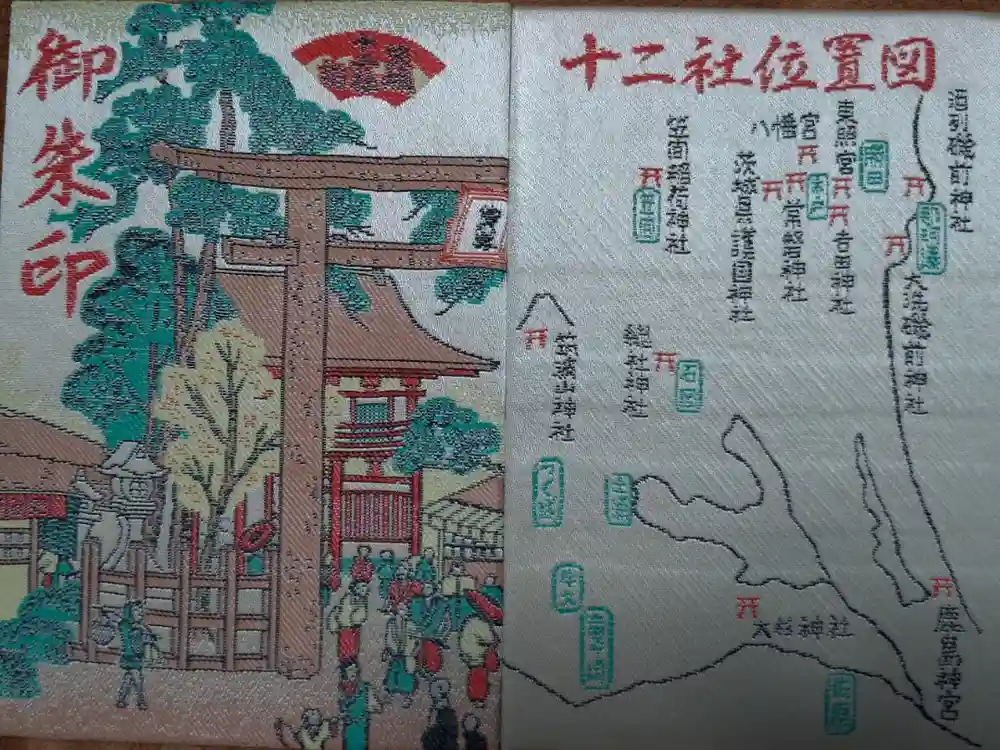 御朱印
十二社位置図
酒列磯前神社
東照宮
八幡宮
水戸
笠間稲荷神社
笠間
茨城縣護國神社
常磐神社
吉田神社
大洗磯前神社
筑波山神社
總社神社
石岡
つくば
土浦
牛久
大杉神社
鹿島神宮